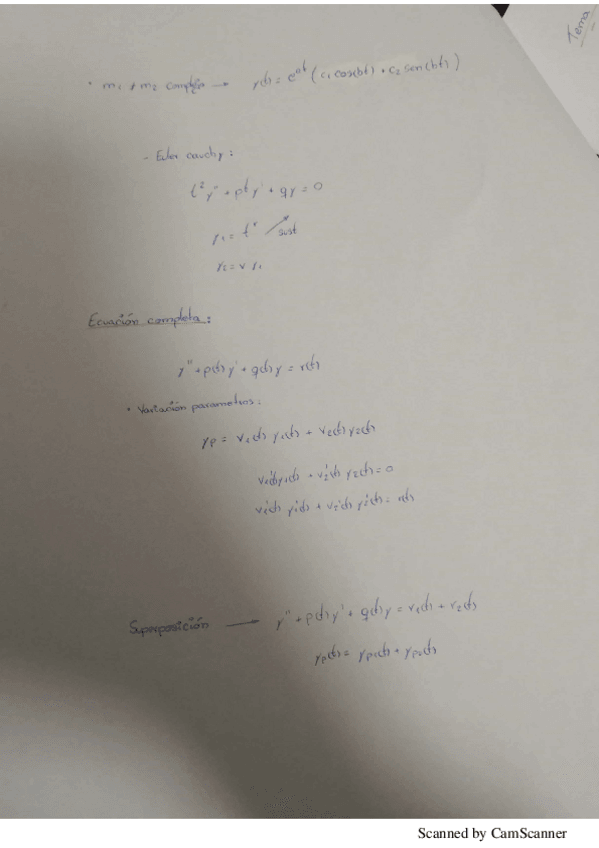 Tema
• m₁ ≠ m₂ complejos → y(t) = e^{at} (c₁ cos(bt) + c₂ sen(bt))
- Euler cauchy :
t² y'' + p t y' + q y = 0
y₁ = t^r sust
y₂ = v y₁
Ecuación completa :
y'' + p(t) y' + q(t) y = r(t)
• Variación parametros :
yp = v₁(t) y₁(t) + v₂(t) y₂(t)
v₁'(t) y₁(t) + v₂'(t) y₂(t) = 0
v₁'(t) y₁'(t) + v₂'(t) y₂'(t) = r(t)
Superposición — y'' + p(t) y' + q(t) y = r₁(t) + r₂(t)
yp(t) = yp₁(t) + yp₂(t)
Scanned by CamScanner